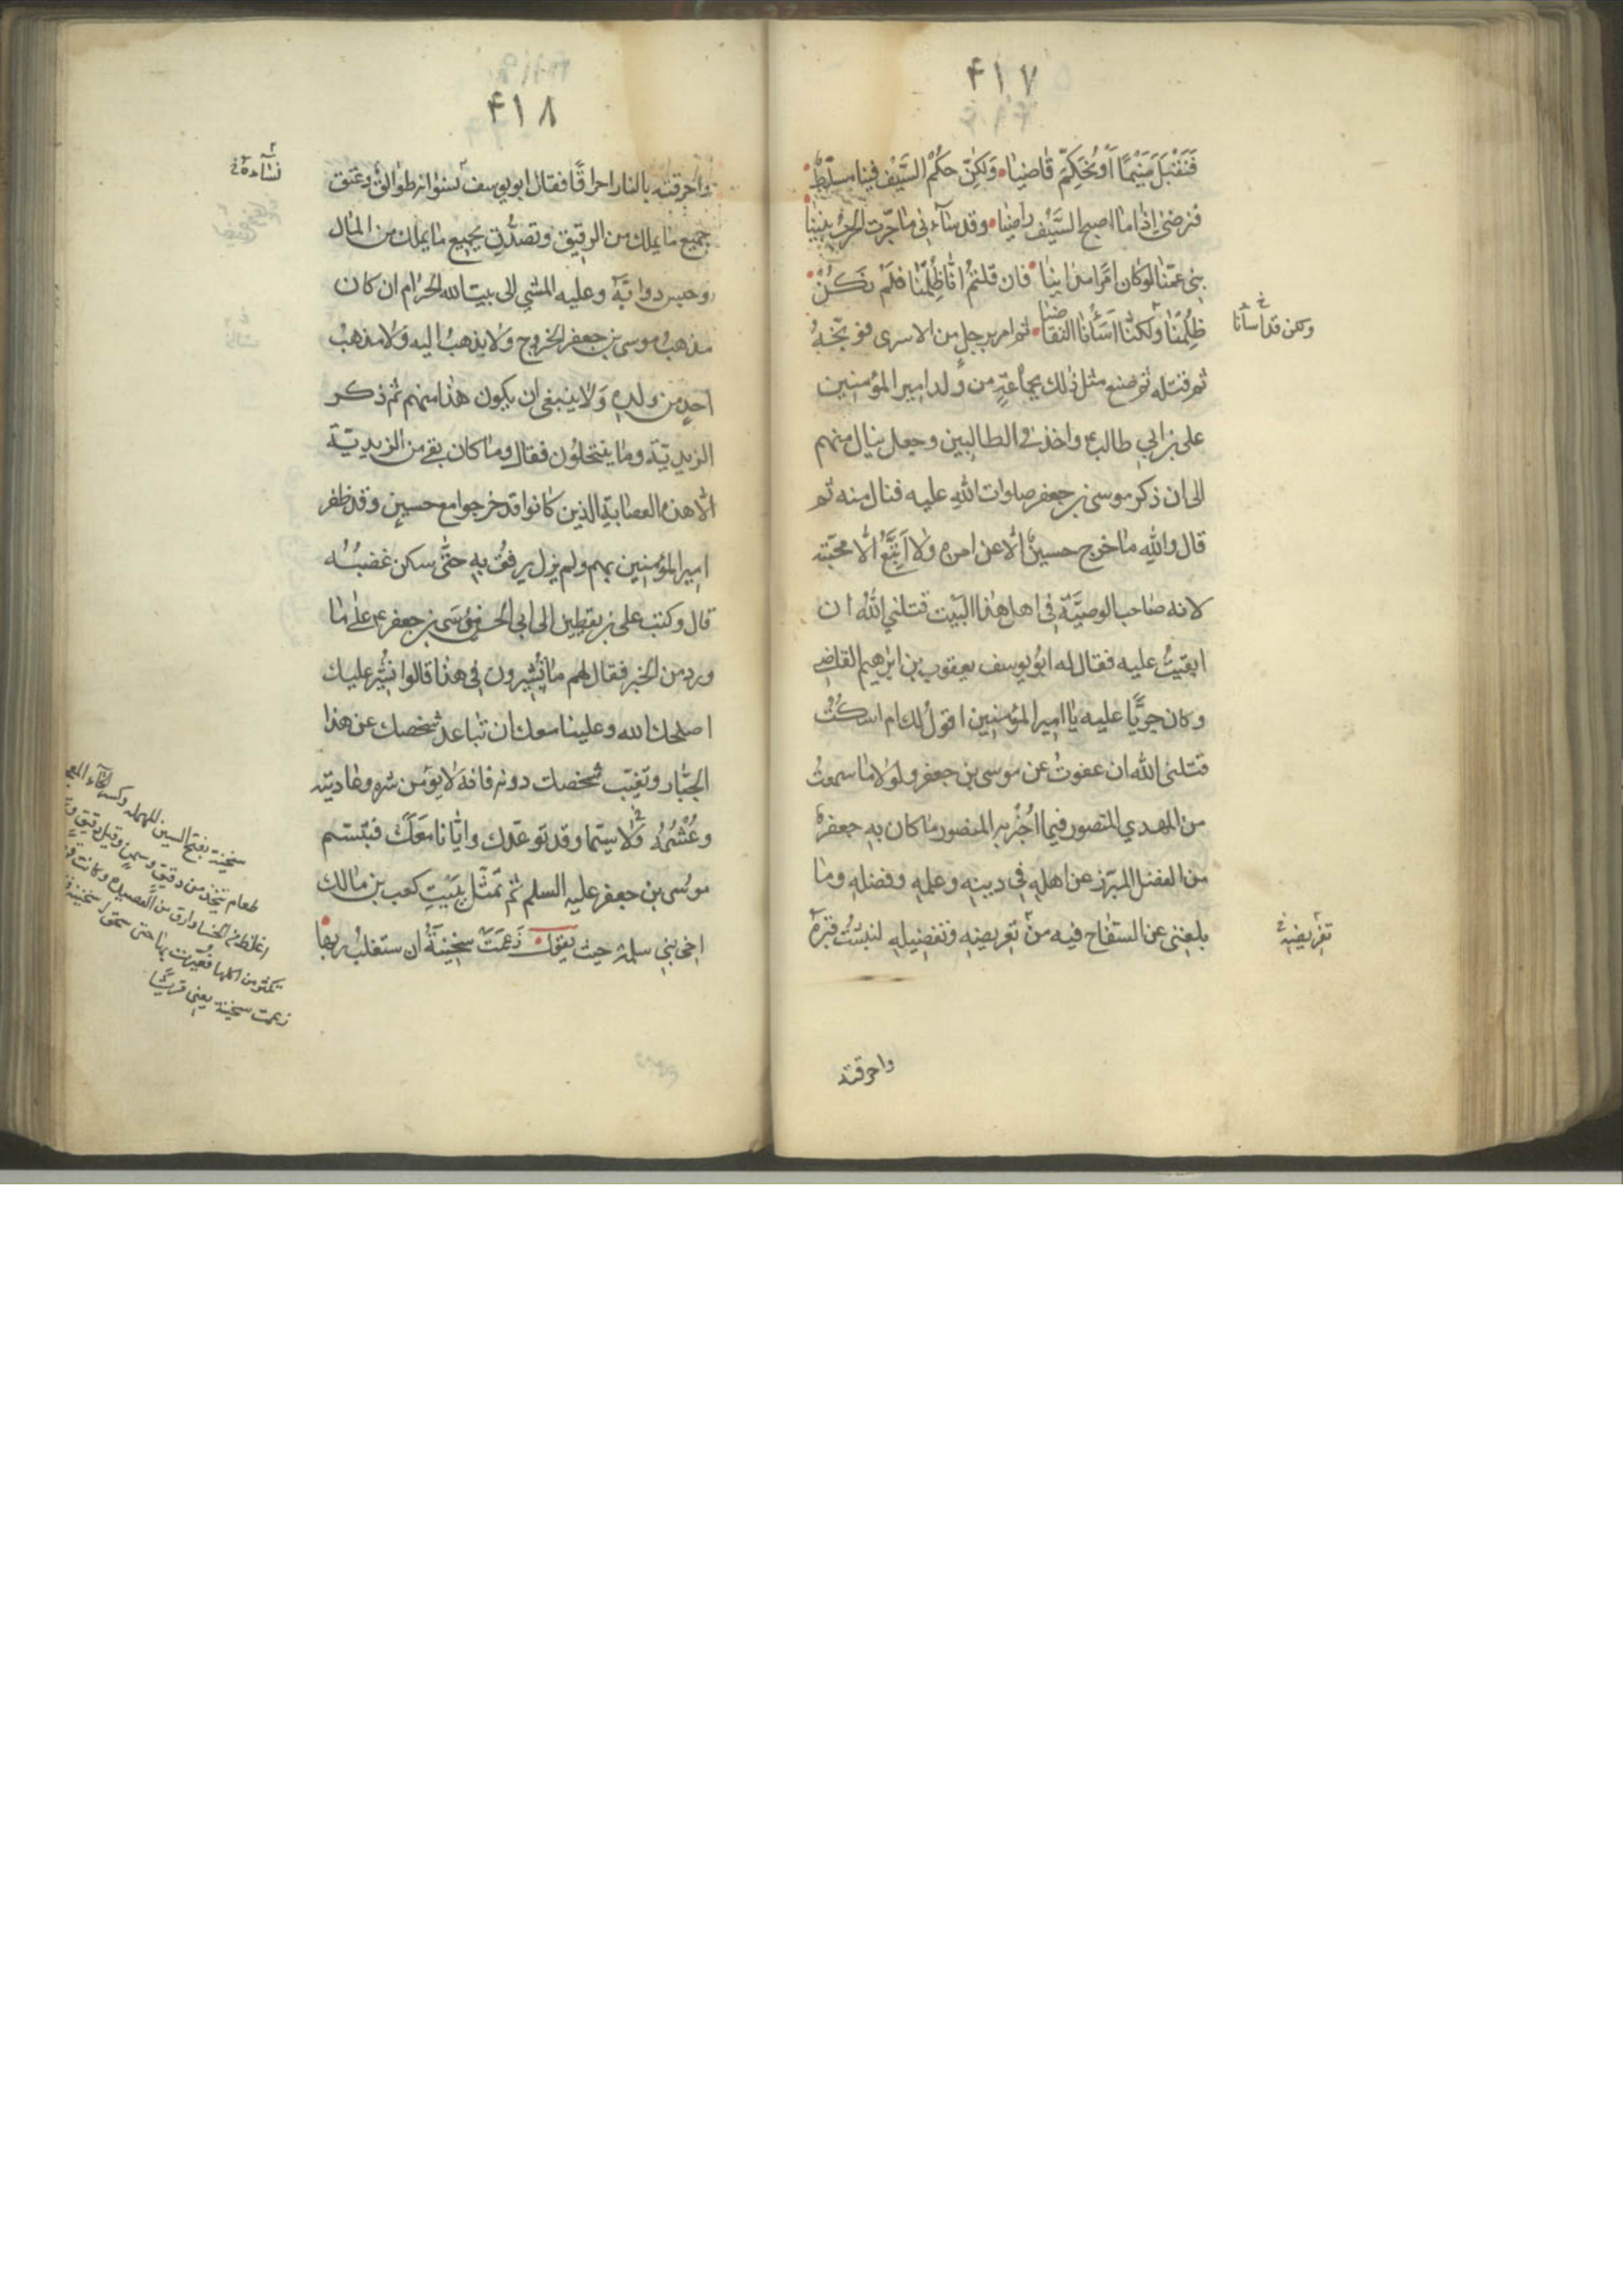 ٤١٧
فَنَقْبَلَ ضَيْمًا أَوْ نُحَكِّمَ قَاضِيًا وَلَكِنَّ حُكْمَ السَّيْفِ فِينَا مُسَلَّطٌ
فنرضى إذا ما اصبح السَّيْف راضيا وقد ساءني ما جرّت الحرب بيننا
بني عمنا لو كان امرا مدانيا فان قلتم انا ظلمنا فلم نكن
ظلمنا ولكنا اسأنا التقاضيا ثم امر برجل من الاسرى فوبّخه
ولكن قد اسأنا خ
ثم قتله ثم صنع مثل ذلك بجماعة من ولد امير المؤمنين
على بن ابي طالب ع واخذ في الطالبين وجعل ينال منهم
الى ان ذكر موسى بن جعفر صلوات الله عليه فنال منه ثم
قال والله ما خرج حسين الا عن امره ولا اتبع الا محبته
لانه صاحب الوصيّة في اهل هذا البيت قتلني الله ان
ابقيت عليه فقال له ابو يوسف يعقوب بن ابرهيم القاضي
وكان جريّا عليه يا امير المؤمنين اقول لك ام اسكت
قتلني الله ان عفوت عن موسى بن جعفر ولولا ما سمعت
من المهدي المنصور فيما اخبر به المنصور ما كان به جعفر
من الفضل المبرّز عن اهله في دينه وعلمه وفضله وما
بلغني عن السفاح فيه من تعريضه وتفضيله لنبشت قبره
تقريضه خ
واحرقته
٤١٨
واحرقته بالنار احراقا فقال ابو يوسف نسوانه طوالق وعتق
نساءه خ
جميع ما يملك من الرقيق وتصدّق بجميع ما يملك من المال
وحبس دوابّه وعليه المشي الى بيت الله الحرام ان كان
مذهب موسى بن جعفر الخروج ولا يذهب اليه ولا مذهب
احد من ولده ولا ينبغي ان يكون هذا منهم ثم ذكر
الزيديّة وما ينتحلون فقال وما كان بقي من الزيديّة
الا هذه العصابة الذين كانوا قد خرجوا مع حسين وقد ظفر
امير المؤمنين بهم ولم يزل يرفق به حتى سكن غضبه
قال وكتب على بن يقطين الى ابي الحسن موسى بن جعفر ع على ما
ورد من الخبر فقال لهم ما تشيرون في هذا قالوا نشير عليك
اصلحك الله وعلينا معك ان تباعد شخصك عن هذا
الجبّار وتغيّب شخصك دونه فانه لا يؤمن شره وعاديته
وغشمه ولا سيّما وقد توعّدك وايّانا معك فتبسّم
موسى بن جعفر عليه السلم ثم تمثّل ببيت كعب بن مالك
اخي بني سلمة حيث يقول زعمت سخينة ان ستغلب ربها
سخينة بفتح السين المهملة وكسر الخاء المعجمة
طعام يتخذ من دقيق وسمن وقيل دقيق
اغلظ من الحساء وارق من العصيدة وكانت
تكثر من اكلها فعيرت بها حتى سموا سخينة
زعمت سخينة يعني قريشا